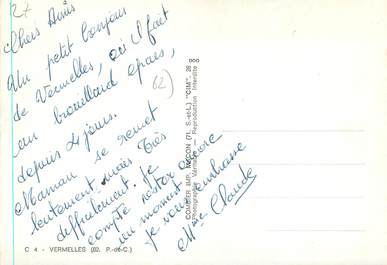 27
Chers Amis
Un petit bonjour
de Vermelles, où il fait
un brouillard épais,
depuis 4 jours.
Maman se remet
lentement mais très
difficilement. Je
compte rester encore
un moment.
Je vous embrasse
Mme Claude
62)
C 4 - VERMELLES (62. P.-de-C.)
COMBIER IMP. MACON (71. S.-et-L.) "CIM" 26 000
Photographie Véritable - Reproduction Interdite